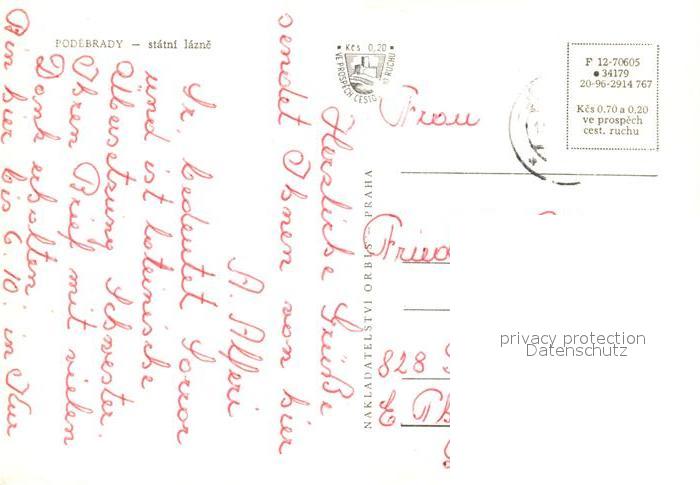 PODĚBRADY — státní lázně
Herzliche Grüße
sendet Ihnen von hier
A. Alferi
Sr. bedeutet Sorror
und ist lateinische
Übersetzung Schwester.
Ihren Brief mit vielen
Dank erhalten.
Bin hier bis 6. 10. in Kur
Kčs 0,20
VE PROSPĚCH CESTOVNÍHO RUCHU
NAKLADATELSTVÍ ORBIS — PRAHA
F 12-70605
34179
20-96-2914 767
Kčs 0,70 a 0,20
ve prospěch
cest. ruchu
Frau
Fried
828
privacy protection
Datenschutz